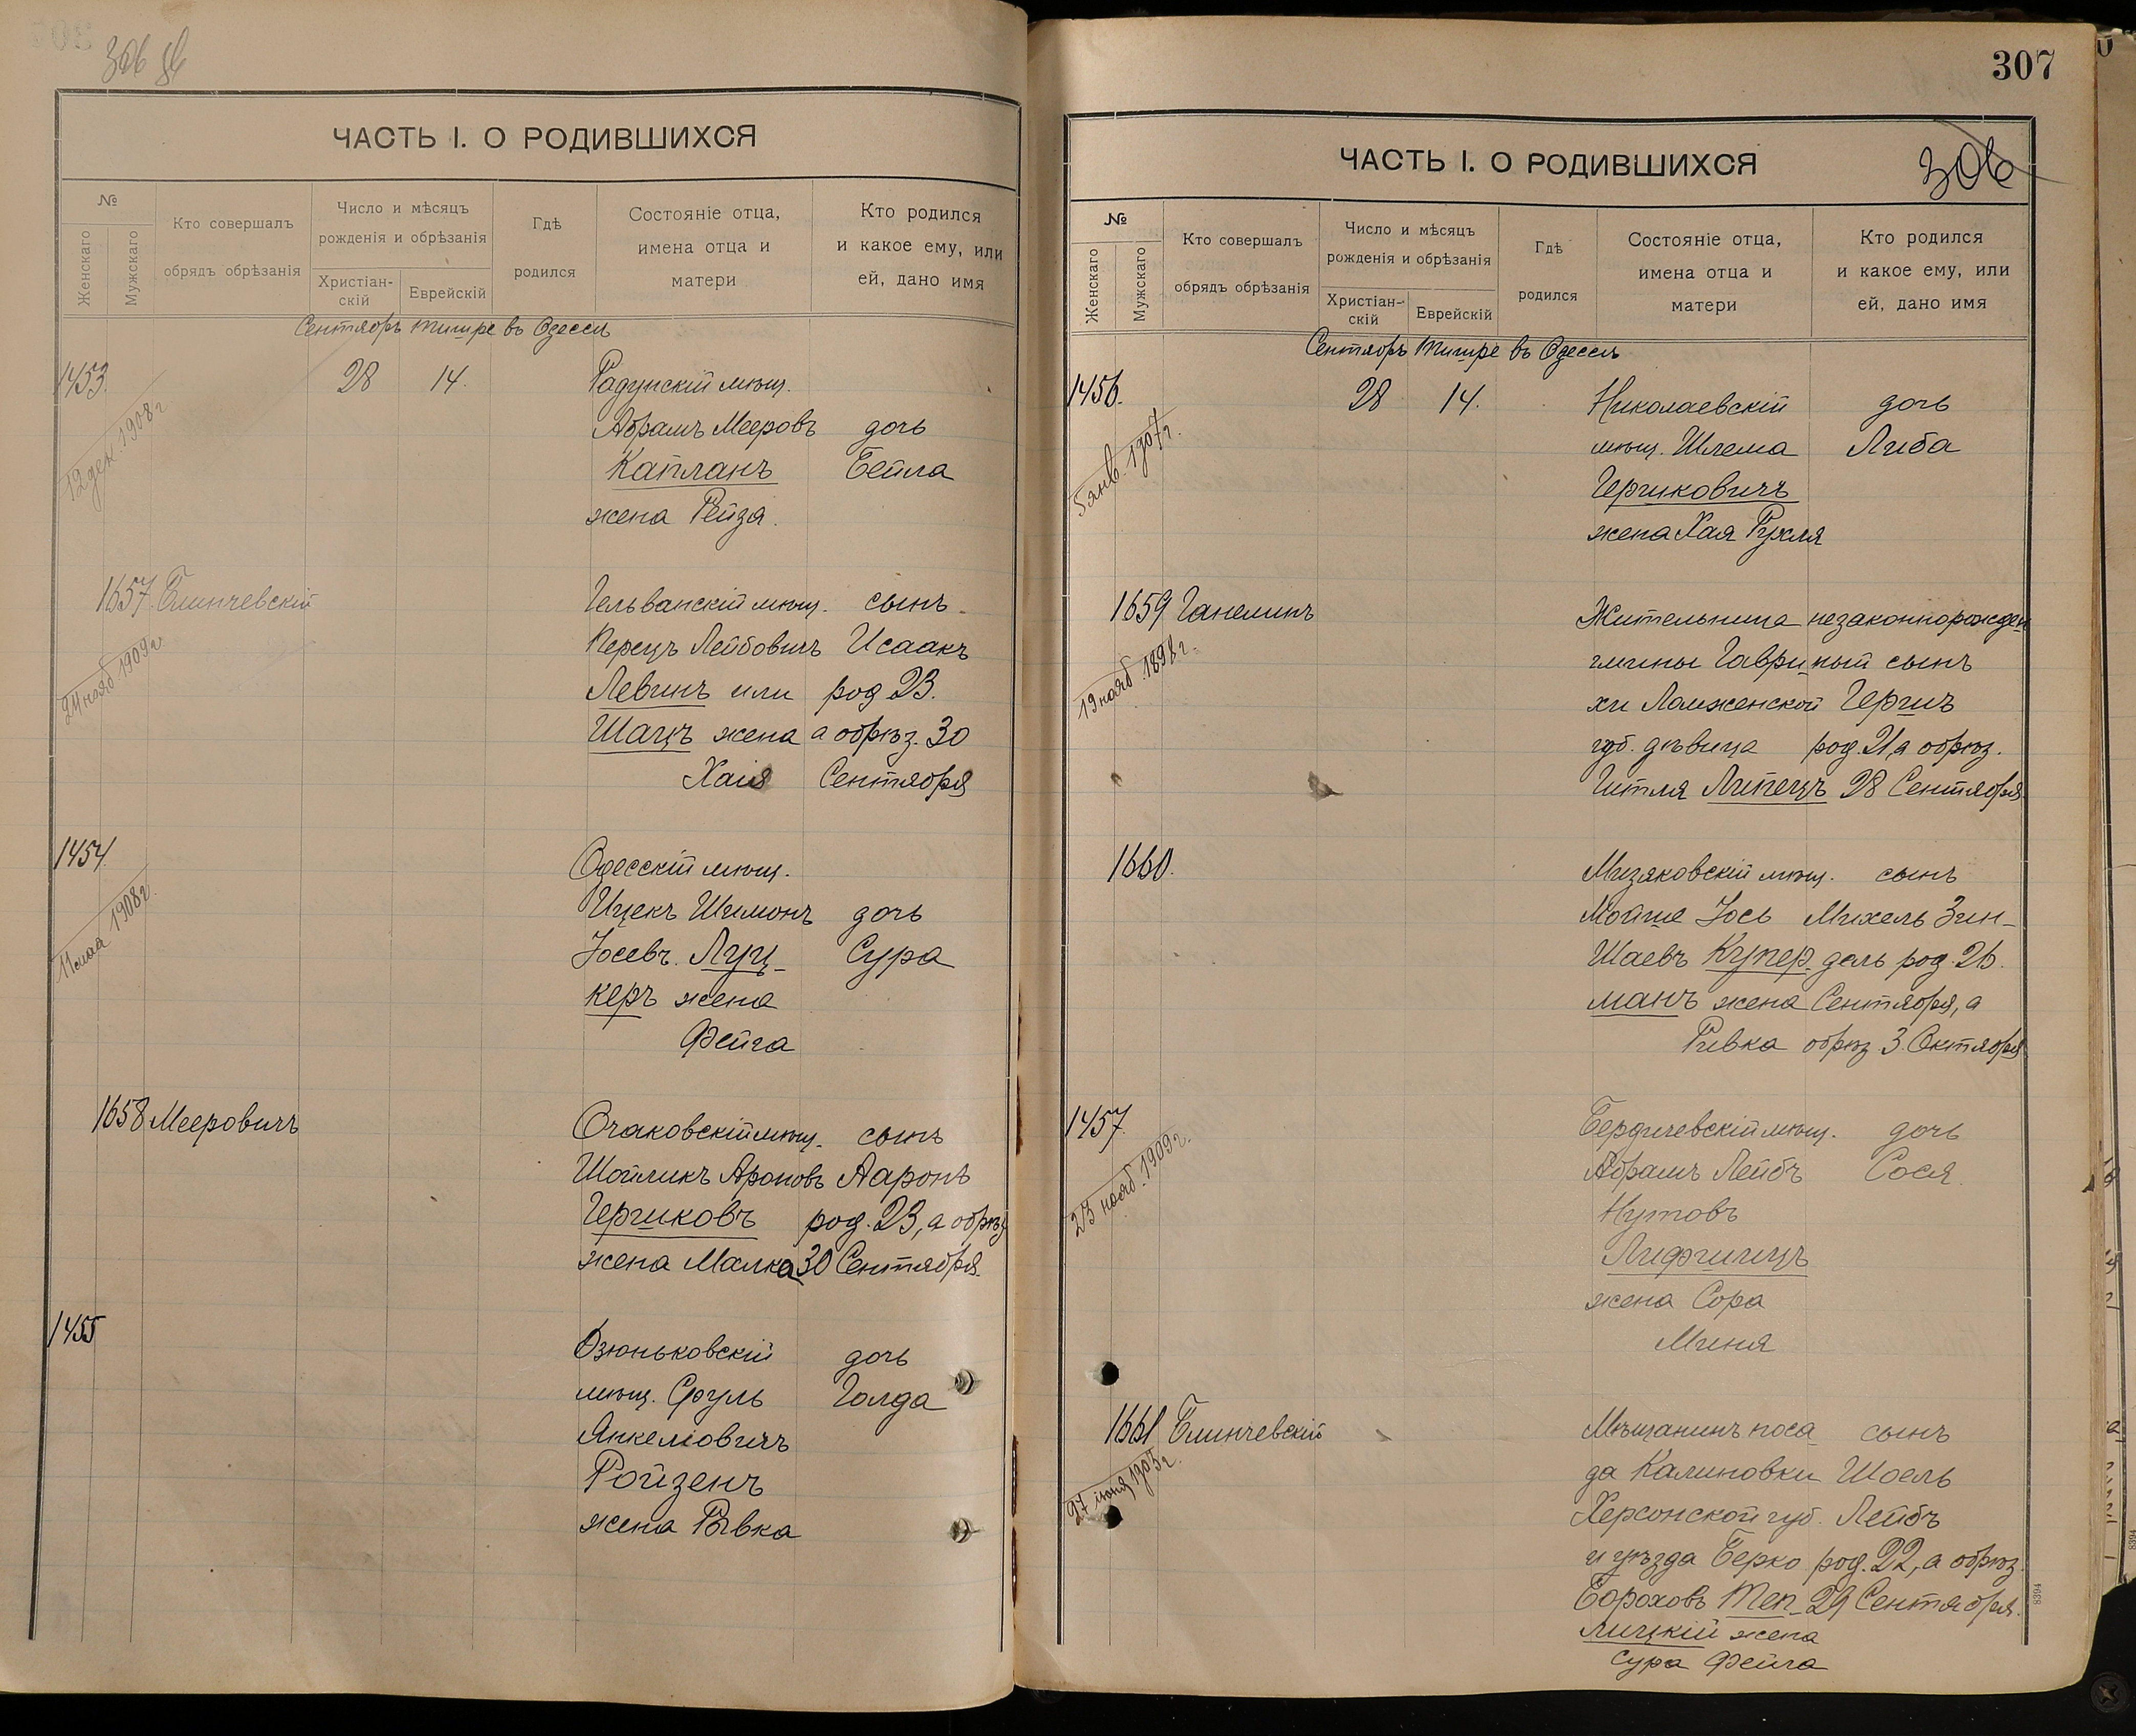 306
ЧАСТЬ I. О РОДИВШИХСЯ
№
Женскаго
Мужскаго
Кто совершалъ
обрядъ обрѣзанія
Число и мѣсяцъ
рожденія и обрѣзанія
Христіан-
скій
Еврейскій
Гдѣ
родился
Состояніе отца,
имена отца и
матери
Кто родился
и какое ему, или
ей, дано имя
Сентябрь Тишре въ Одессѣ
1453. 28 14. Радунскій мѣщ.
12 дек. 1908 г.
Абрамъ Мееровъ дочь
Капланъ Бейла
жена Рейза.
1657. Блинчевскій Гельванскій мѣщ. сынъ
24 нояб. 1909 г.
Перецъ Лейбовичъ Исаакъ
Левинъ или род 23.
Шацъ жена а обрѣз. 30
Хая Сентября
1454. Одесскій мѣщ.
11 мая 1908 г.
Ицекъ Шимонъ дочь
Іосевъ Луц- Сура
керъ жена
Фейга
1658 Мееровичъ Очаковскій мѣщ. сынъ
Шойликъ Ароновъ Ааронъ
Гершковъ род. 23, а обрѣз
жена Малка 30 Сентября.
1455 Дзюньковскій дочь
мѣщ. Сруль Голда
Анкелiовичъ
Ройзенъ
жена Рывка
307
ЧАСТЬ I. О РОДИВШИХСЯ
306
№
Женскаго
Мужскаго
Кто совершалъ
обрядъ обрѣзанія
Число и мѣсяцъ
рожденія и обрѣзанія
Христіан-
скій
Еврейскій
Гдѣ
родился
Состояніе отца,
имена отца и
матери
Кто родился
и какое ему, или
ей, дано имя
Сентябрь Тишре въ Одессѣ
1456. 28 14. Николаевскій дочь
5 янв. 1907 г.
мѣщ. Шлема Либа
Гершковичъ
жена Хая Рухля
1659 Ганелинъ Жительница незаконнорожден
19 нояб. 1898 г.
гмины Гаври ный сынъ
хи Ломженской Гершъ
губ. дѣвица род. 21, а обрѣз.
Гитля Липецъ 28 Сентября.
1660. Мизяковскій мѣщ. сынъ
Мойше Іось Михель Зин-
Шаевъ Купер- дель род. 26.
манъ жена Сентября, а
Ривка обрѣз. 3. Октября
1457. Бердичевскій мѣщ. дочь
23 нояб. 1909 г.
Абрамъ Лейбъ Сося.
Нутовъ
Лифшицъ
жена Сора
Миня
1661 Блинчевскій Мѣщанинъ поса сынъ
27 іюня 1903 г.
да Калиновки Шоель
Херсонской губ. Лейбъ
и уѣзда Берко род. 22, а обрѣз.
Бороховъ Теп- 29 Сентября.
лицкій жена
Сура Фейга
8394